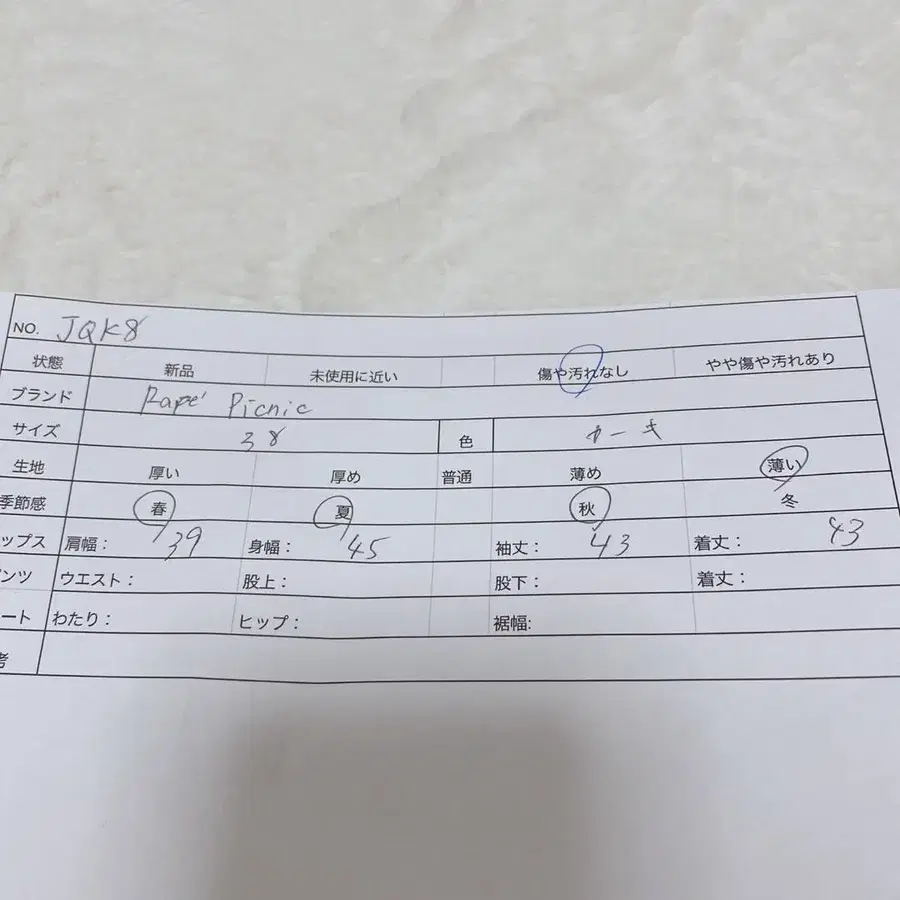 NO. JQK8
状態 新品 未使用に近い 傷や汚れなし やや傷や汚れあり
ブランド Rape' Picnic
サイズ 38 色 カーキ
生地 厚い 厚め 普通 薄め 薄い
季節感 春 夏 秋 冬
ップス 肩幅： 39 身幅： 45 袖丈： 43 着丈： 43
ンツ ウエスト： 股上： 股下： 着丈：
ート わたり： ヒップ： 裾幅:
考